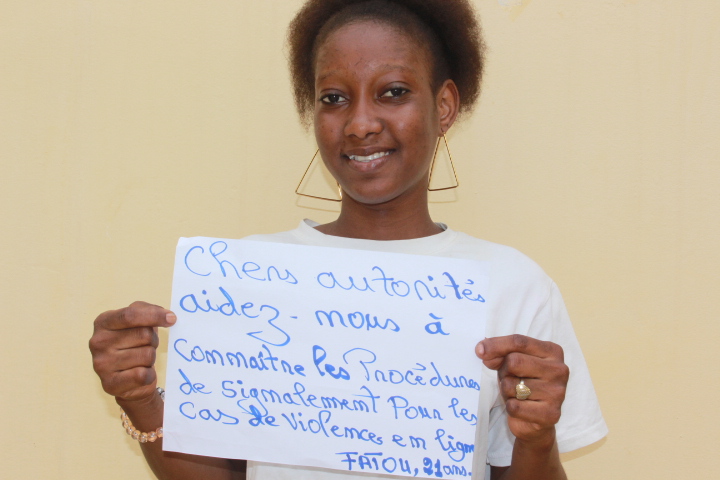 Chers autorités
aidez-nous à
connaître les Procédures
de signalement Pour les
cas de violences en ligne
FATOU, 21 ans.